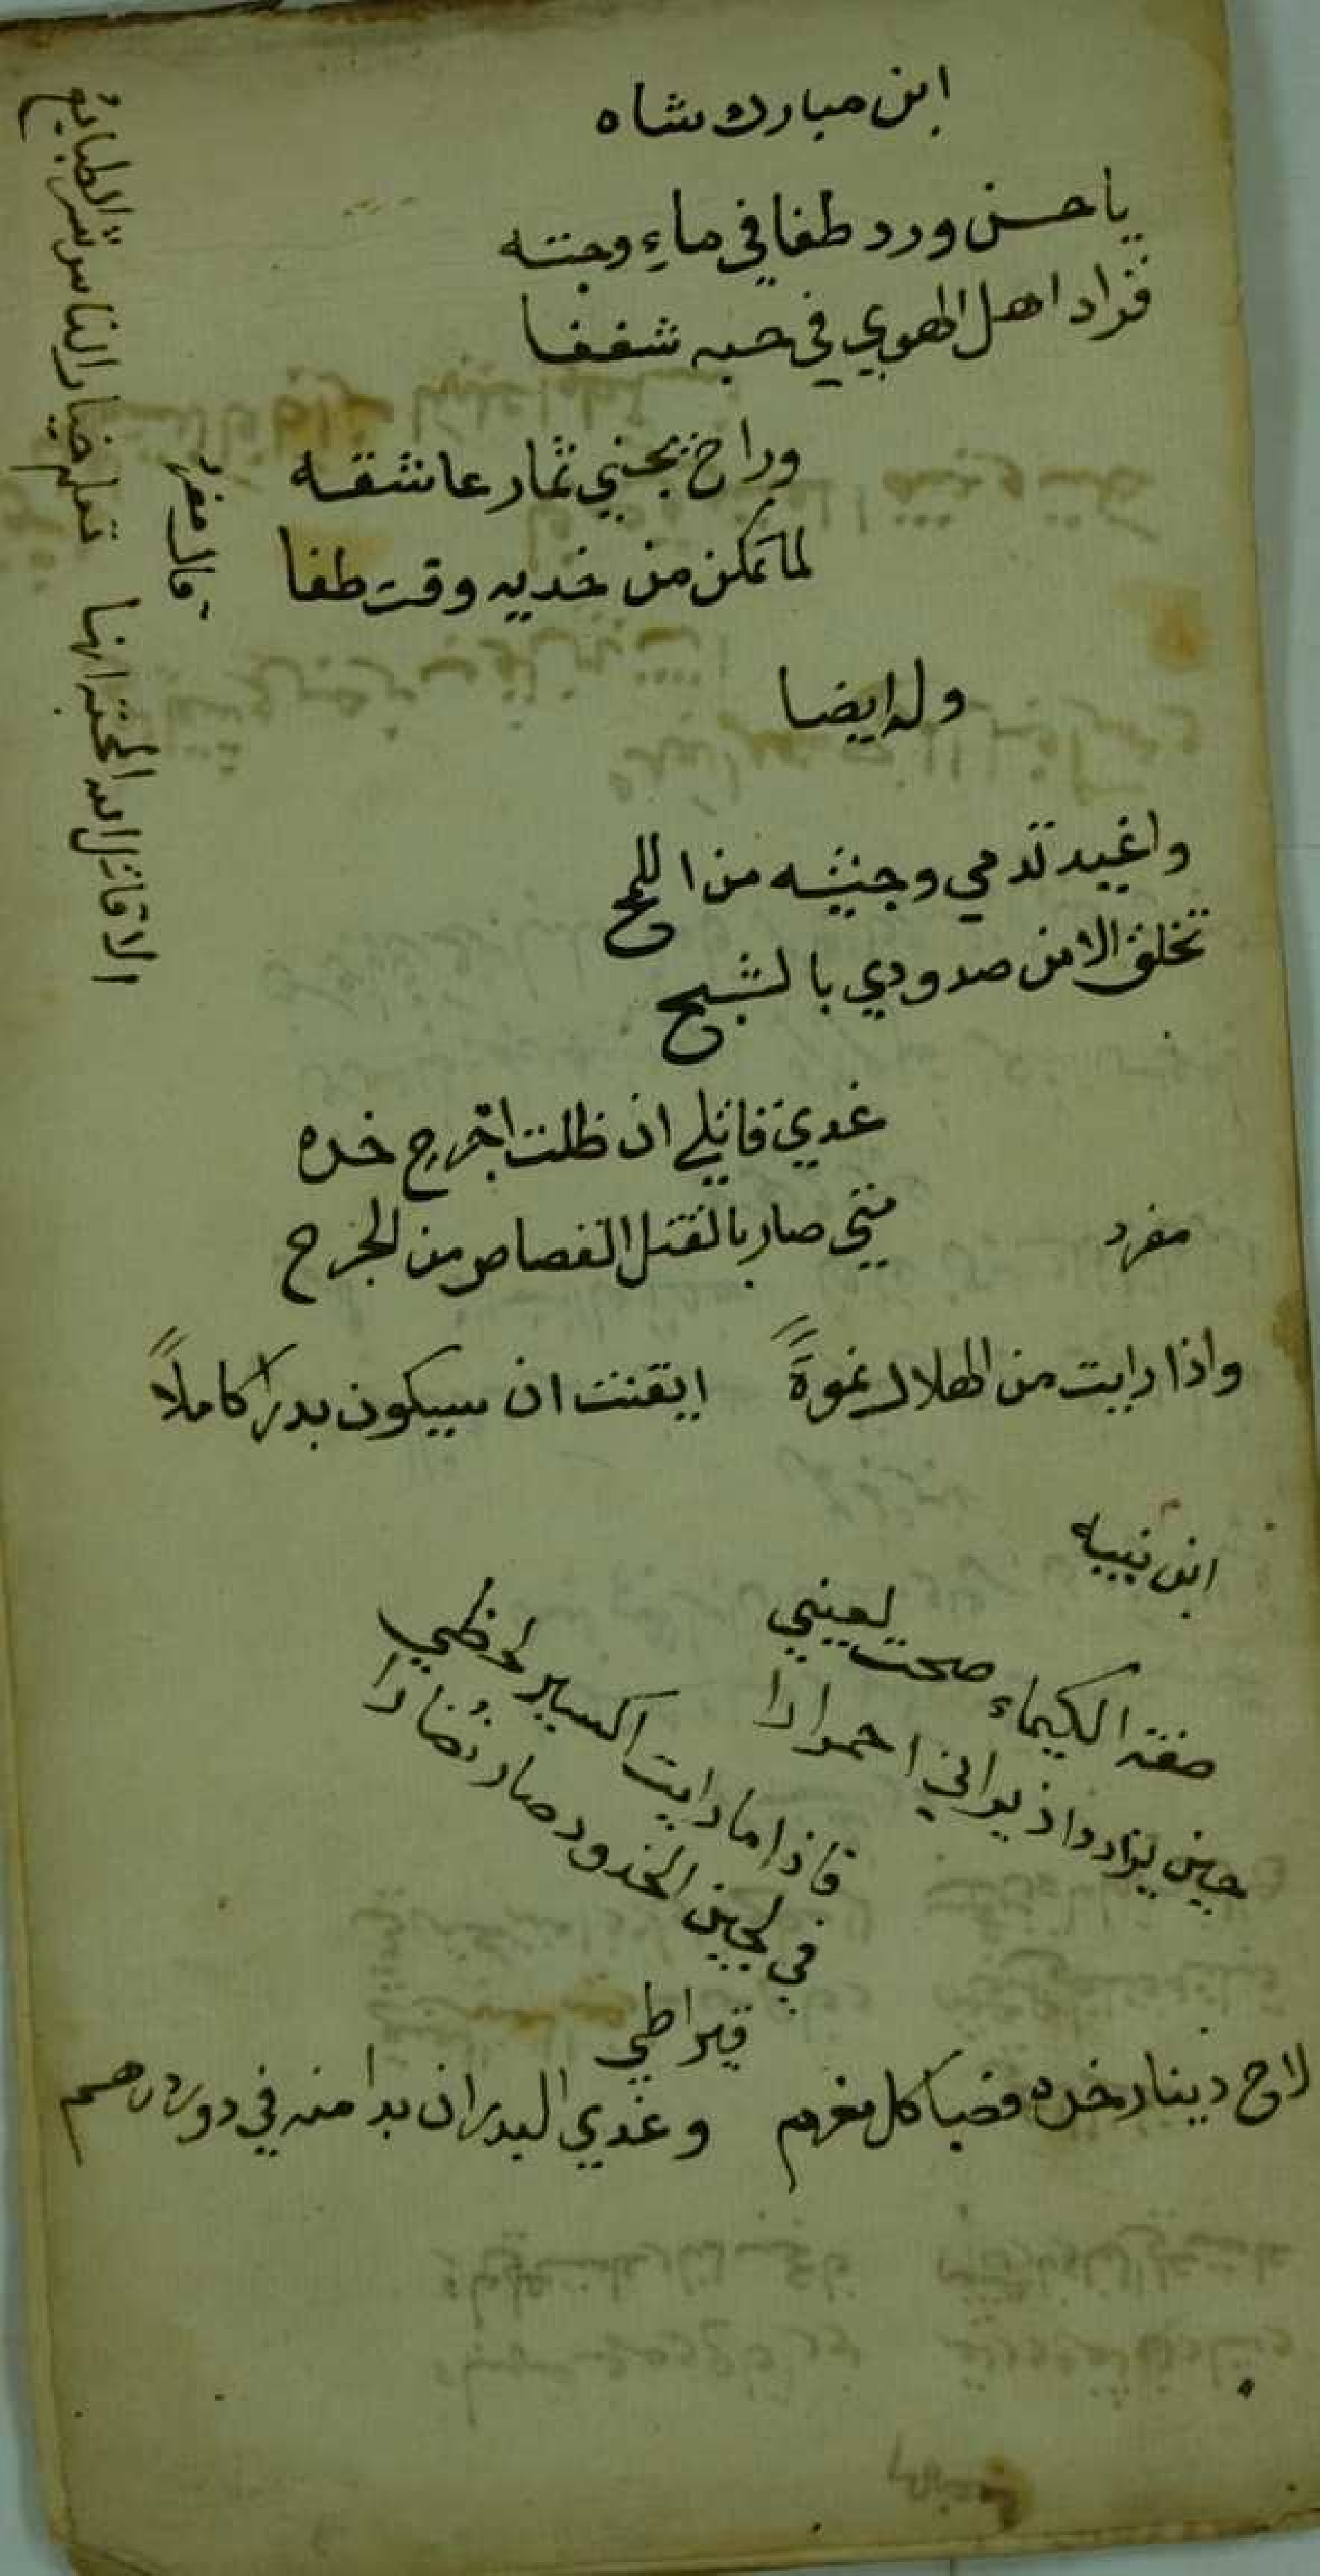 ابن مبارك شاه
ياحسن ورد طفا في ماءِ وجنته
فزاد اهل الهوي في حبه شغفا
وراح يجني ثمار عاشقه
لما تمكن من خديه وقت طفا
وله ايضا
واغيد تدمي وجنتيه من اللمح
تخلق الا من صدودي بالشح
غدي قاتلي ان ظلت اجرح خده
متي صار بالقتل القصاص من الجرح
مفرد
واذا رايت من الهلال نموةً ايقنت ان سيكون بدرًا كاملاً
ابن نبيه
صفة الكيماء صحت لعيني
حين يزداد اذ يراني احمرارا
فاذا ما رايت اكسير لحظي
في لجين الخدود صار نُضارا
قيراطي
لاح دينار خده فصبا كل مغرم وغدي البدر ان بدا منه في دور درهم
قال مفرد
الا قاتل الله المحبة انها تعلم خيار الناس شر الطبايع